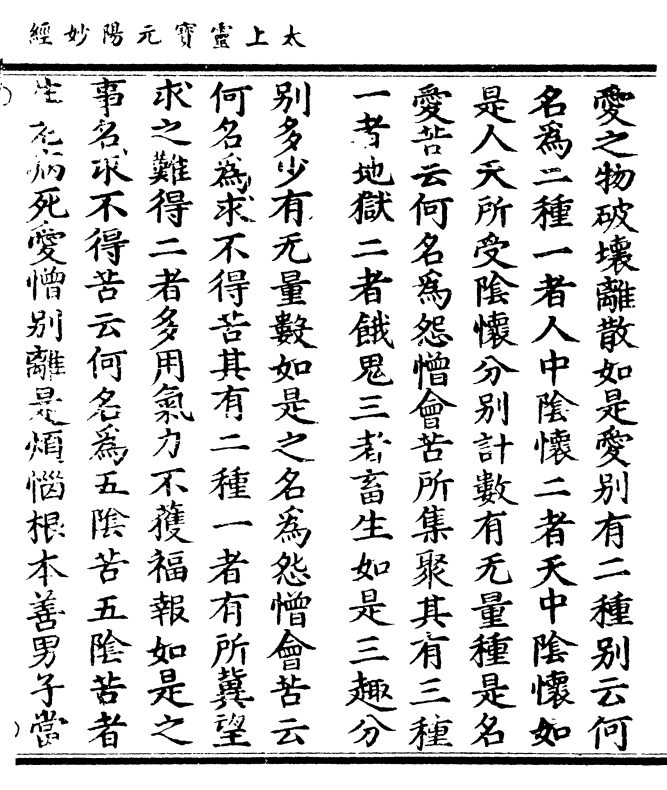 太上靈寶元陽妙經
愛之物破壞離散如是愛別有二種別云何
名爲二種一者人中陰懷二者天中陰懷如
是人天所受陰懷分別計數有无量種是名
愛苦云何名爲怨憎會苦所集聚其有三種
一者地獄二者餓鬼三者畜生如是三趣分
別多少有无量數如是之名爲怨憎會苦云
何名爲求不得苦其有二種一者有所冀望
求之難得二者多用氣力不獲福報如是之
事名求不得苦云何名爲五陰苦五陰苦者
生老病死愛憎別離是煩惱根本善男子當